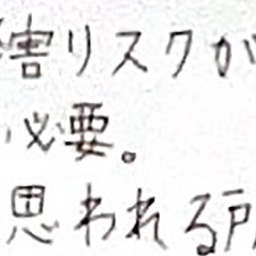 害リスクが
必要。
思われる